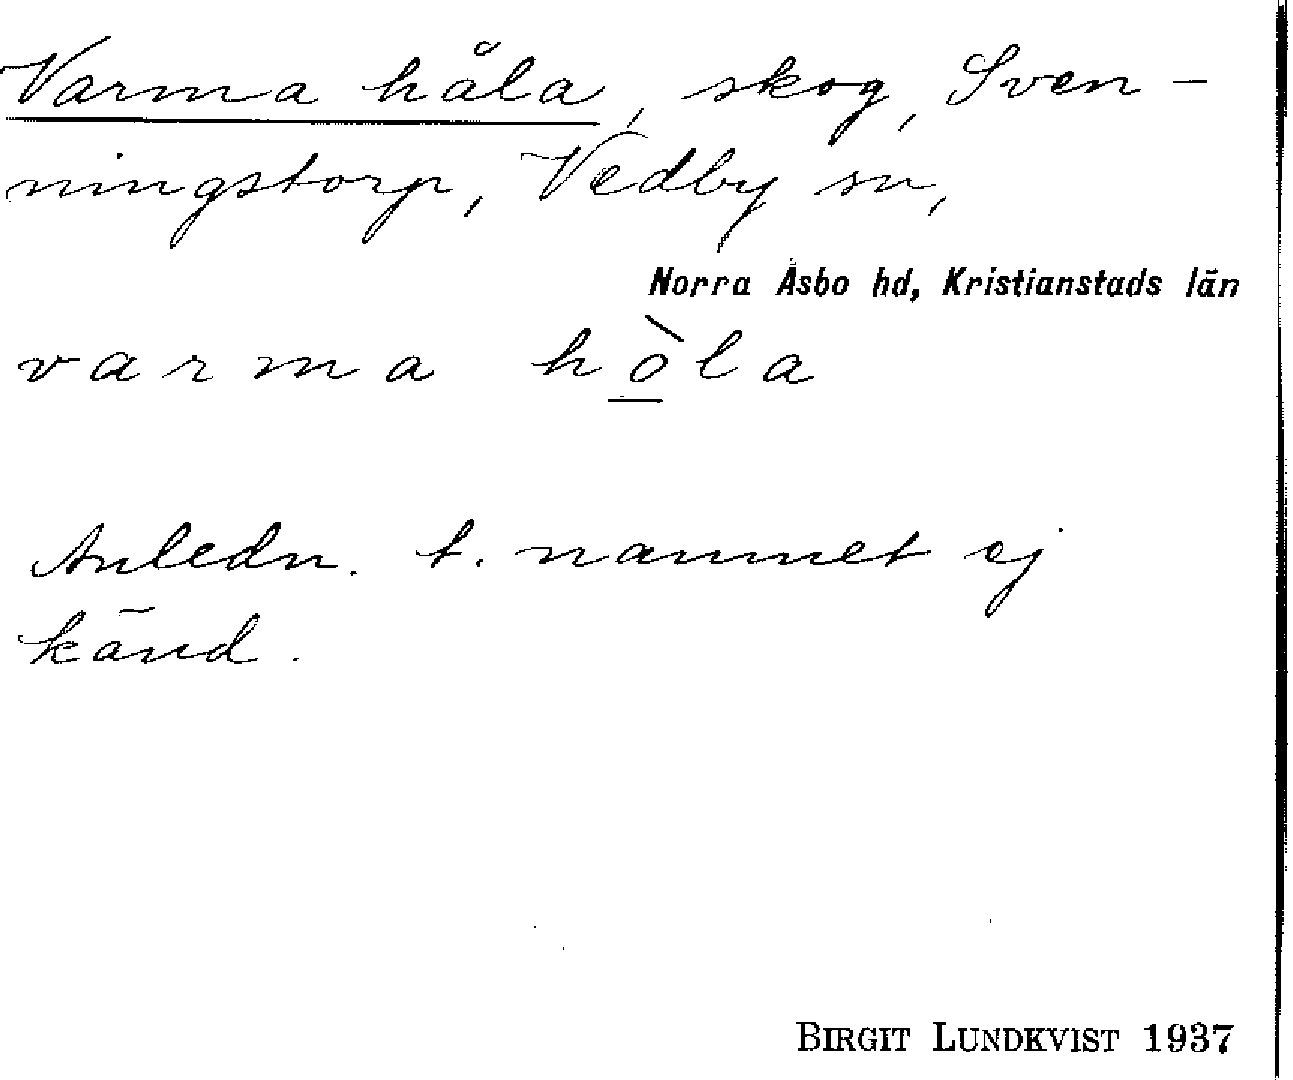 Varma håla, skog, Sven-
ningstorp, Vedby sn,
Norra Åsbo hd, Kristianstads län
varma hò̲la
Anledn. t. namnet ej
känd.
BIRGIT LUNDKVIST 1937